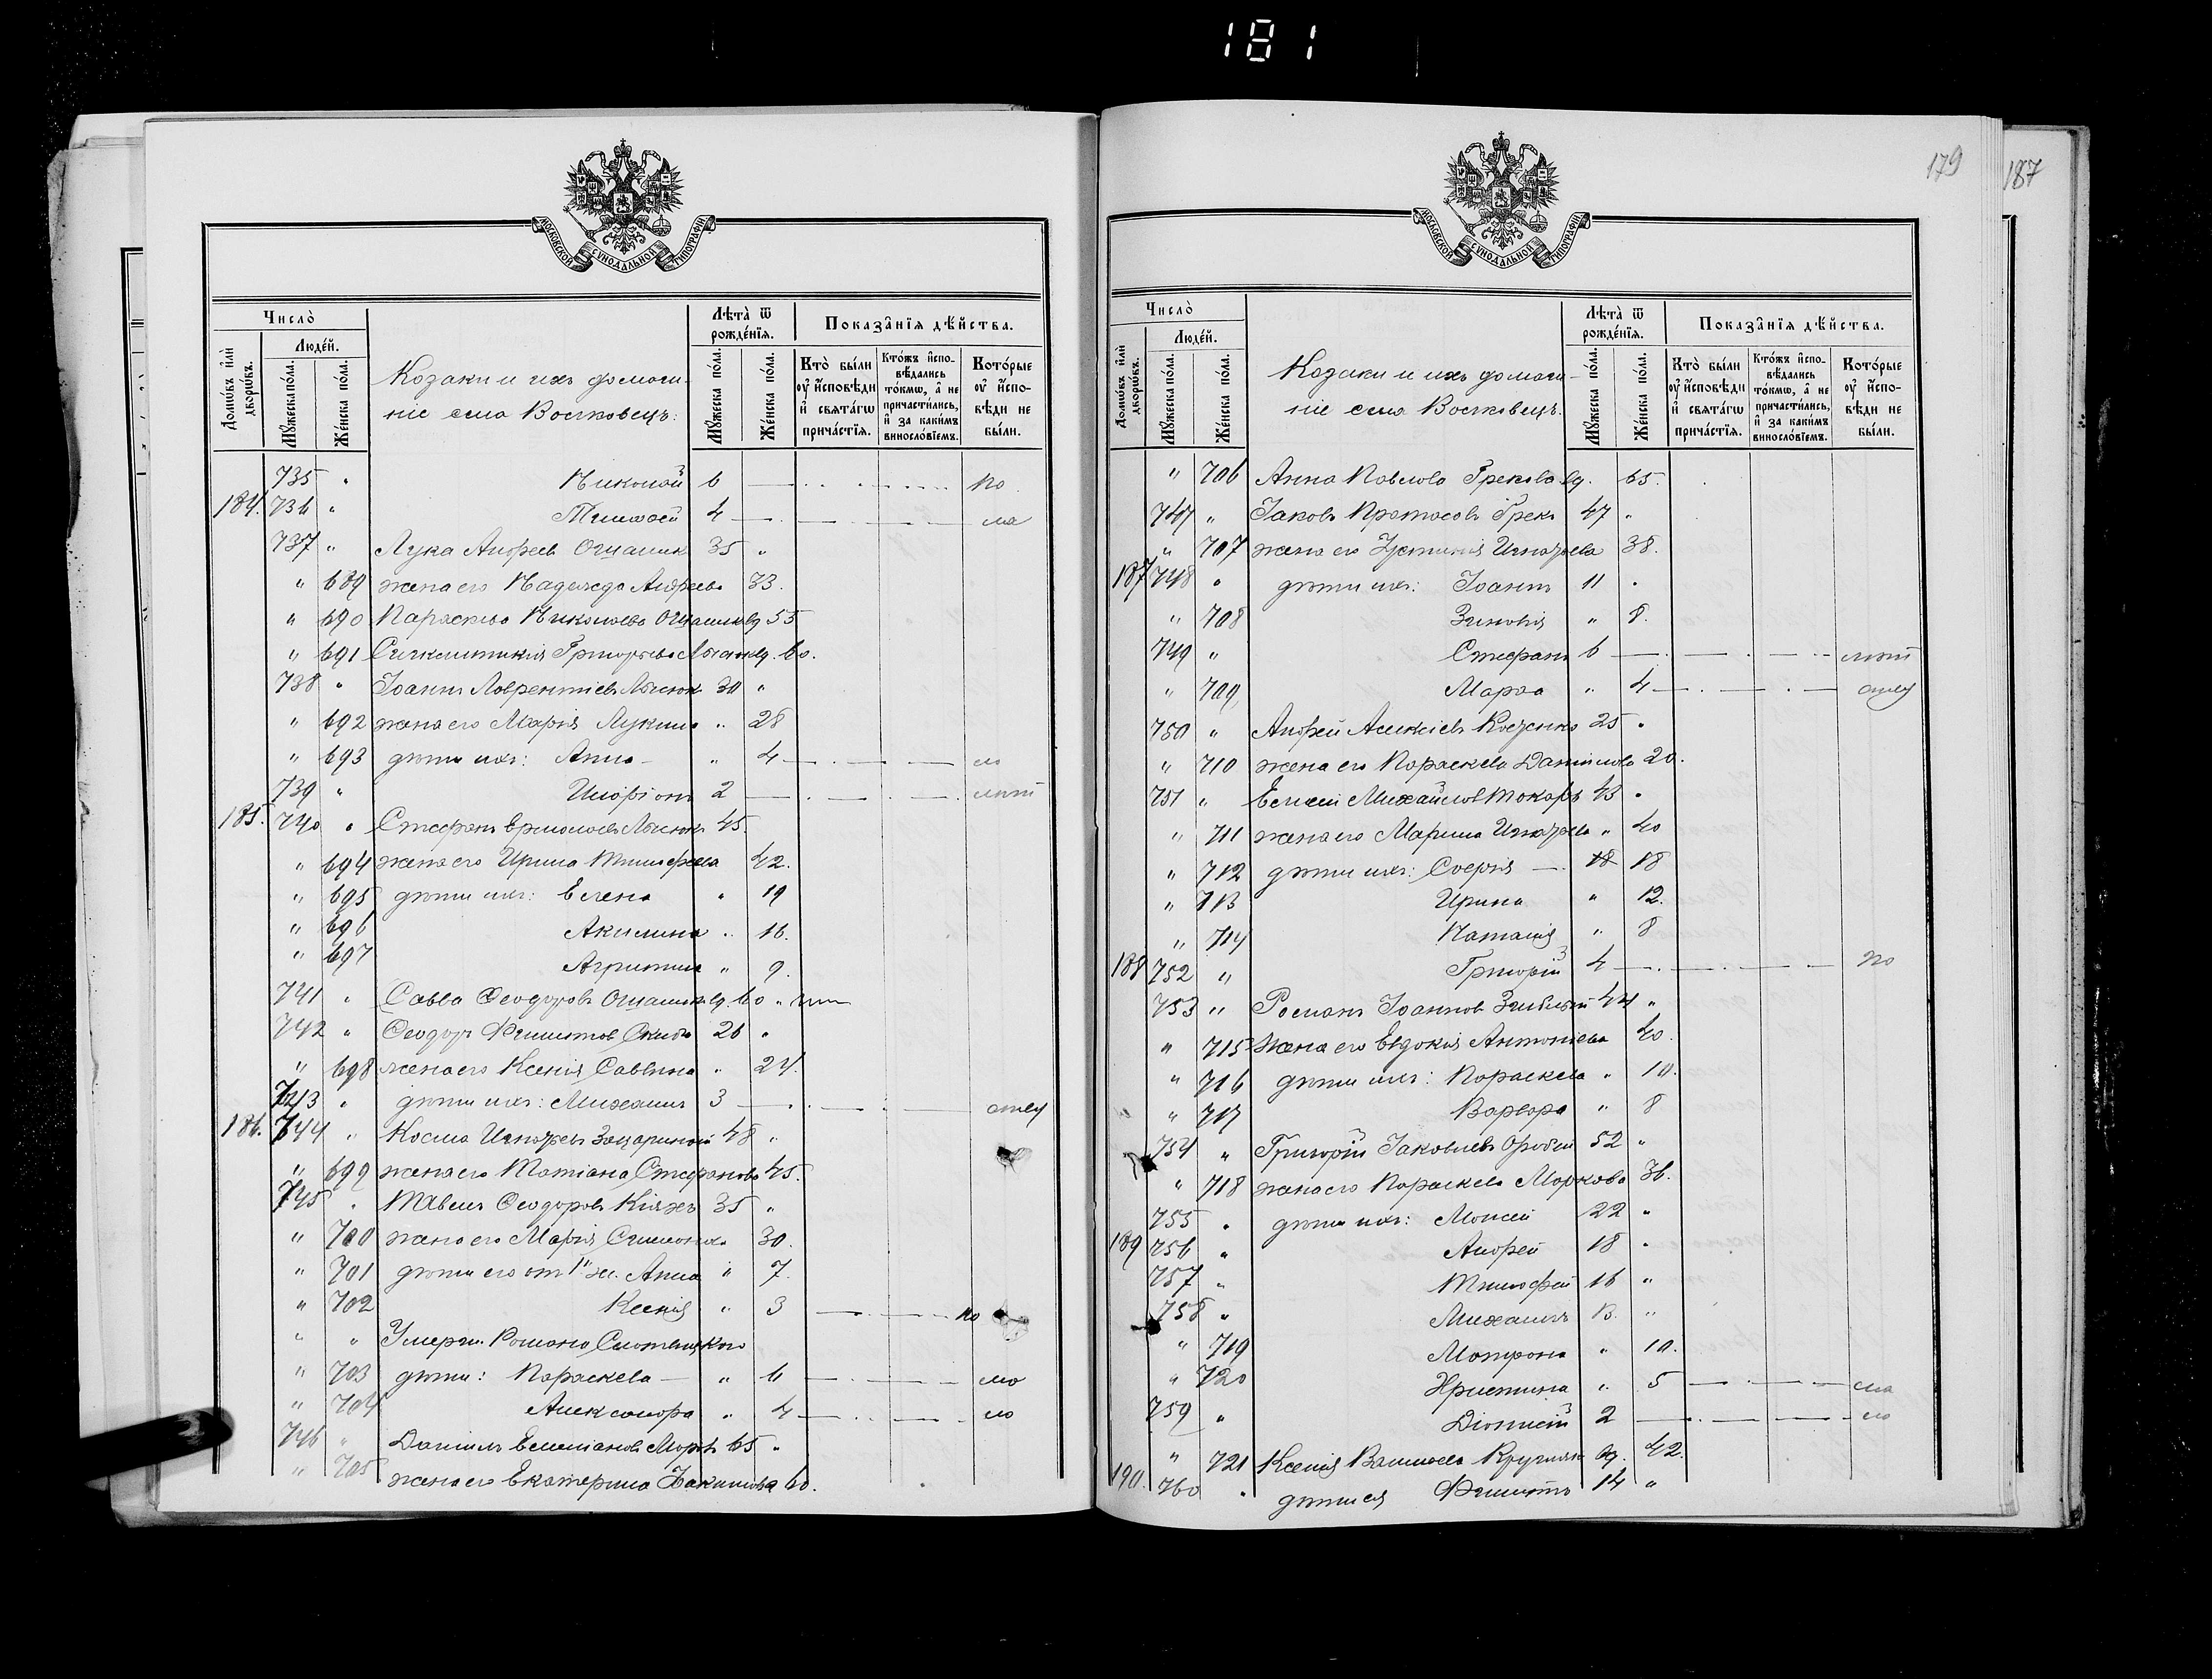 181
179
187
МОСКОВСКОЙ СУНОДАЛЬНОЙ ТИПОГРАФІИ
Число̀
Людѐй.
Домѡ́въ и҆лѝ дворѡ́въ.
Мꙋ́жеска по́ла.
Же́нска по́ла.
Козаки и ихъ домаш-
ніе села
Лѣта̀ ѿ рожде́нїѧ.
Мꙋ́жеска по́ла.
Же́нска по́ла.
Показа̑нїѧ дѣ́йства.
Кто̀ бы́ли оу҆ и҆́сповѣди и҆ свѧта́гѡ прича́стїѧ.
Кто́жъ и҆спо-вѣ́дались то́кмѡ, а҆ не причасти́лись, и҆ за каки́мъ винослові́емъ.
Кото́рые оу҆ и҆спо-вѣди не бы́ли.
735 " Николай 6 по
184. 736 " Тимоѳей 4 ма
737 " Лука Андреевъ 35 "
" 689 жена его Надежда Андреева 33.
" 690 Параскева Николаева вд 55
" 691 Синклитикія Григорьева вд. 60.
738 " Іоаннъ Лаврентіевъ 30 "
" 692 жена его Марія Лукина " 28
" 693 дѣти ихъ: Анна " 4 ло
739 " 2 лѣт
185. 740 " Стефанъ Ермолаевъ 45.
" 694 жена его Ирина Тимофеева 42.
" 695 дѣти ихъ: Елена " 19
" 696 Акилина " 16.
" 697 Агрипина " 9.
741 " Савва Ѳеодоровъ вд. 60 "
742 " Ѳеодоръ Филиповъ 26 "
" 698 жена его Ксенія Саввина " 24.
743 " дѣти ихъ: Михаилъ 3
186. 744 " Косма Игнатьевъ 48 "
" 699 жена его Татіана Стефанова 45.
745 " Павелъ Ѳеодоровъ 35 "
" 700 жена его Марія 30.
" 701 дѣти его от 1й ж. Анна " 7.
" 702 Ксенія " 3 по
" " Умерш. Романа
" 703 дѣти: Параскева " 6 мо
" 704 Александра " 4 ло
746 " Даніилъ Емеліановъ 65 "
" 705 жена его Екатерина 60.
МОСКОВСКОЙ СУНОДАЛЬНОЙ ТИПОГРАФІИ
Число̀
Людѐй.
Домѡ́въ и҆лѝ дворѡ́въ.
Мꙋ́жеска по́ла.
Же́нска по́ла.
Козаки и ихъ домаш-
ніе села
Лѣта̀ ѿ рожде́нїѧ.
Мꙋ́жеска по́ла.
Же́нска по́ла.
Показа̑нїѧ дѣ́йства.
Кто̀ бы́ли оу҆ и҆́сповѣди и҆ свѧта́гѡ прича́стїѧ.
Кто́жъ и҆спо-вѣ́дались то́кмѡ, а҆ не причасти́лись, и҆ за каки́мъ винослові́емъ.
Кото́рые оу҆ и҆спо-вѣди не бы́ли.
" 706 Анна Павлова Грекова вд. 65.
747 " Іаковъ Протасовъ Грекъ 47 "
" 707 жена его Іустинія Игнатьева 38.
187 748 " дѣти ихъ: Іоаннъ 11 "
" 708 Зиновія " 8.
749 " Стефанъ 6 лѣт
" 709 Марѳа " 4
750 " Андрей Алексіевъ 25 "
" 710 жена его Параскева Даніилова 20.
751 " Елисей Михайловъ Токарь 43 "
" 711 жена его Марина Игнатьева " 40
" 712 дѣти ихъ: Софія 18 18
" 713 Ирина " 12.
" 714 Наталія " 8
188 752 " Григорій 4 по
753 " Романъ Іоанновъ 44 "
" 715 Жена его Евдокія Антоніева 40.
" 716 дѣти ихъ: Параскева " 10.
" 717 Варвара " 8
754 " Григорій Іаковлевъ 52 "
" 718 жена его Параскева Маркова 36.
755 " дѣти ихъ: Моисей 22 "
189 756 " Андрей 18 "
757 " Тимофей 16 "
758 " Михаилъ 13. "
" 719 Матрона " 10.
" 720 Христина " 5 ма
759 " Діонисій 2 ло
" 721 Ксенія вд. 42.
190. 760 " дѣти ея Филиппъ 14 "